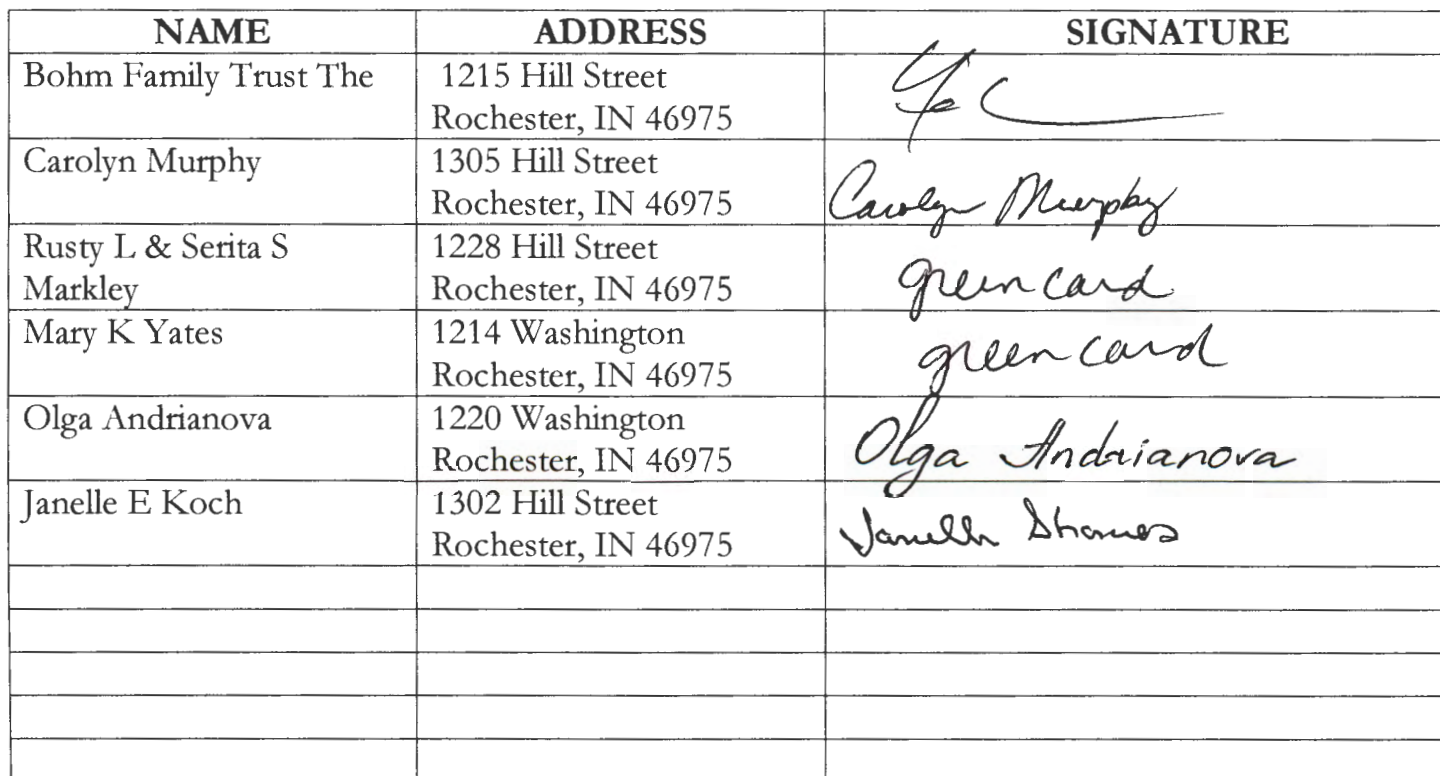 NAME ADDRESS SIGNATURE
Bohm Family Trust The 1215 Hill Street
Rochester, IN 46975
Carolyn Murphy 1305 Hill Street
Rochester, IN 46975 Carolyn Murphy
Rusty L & Serita S 1228 Hill Street
Markley Rochester, IN 46975 green card
Mary K Yates 1214 Washington
Rochester, IN 46975 green card
Olga Andrianova 1220 Washington
Rochester, IN 46975 Olga Andrianova
Janelle E Koch 1302 Hill Street
Rochester, IN 46975 Janelle